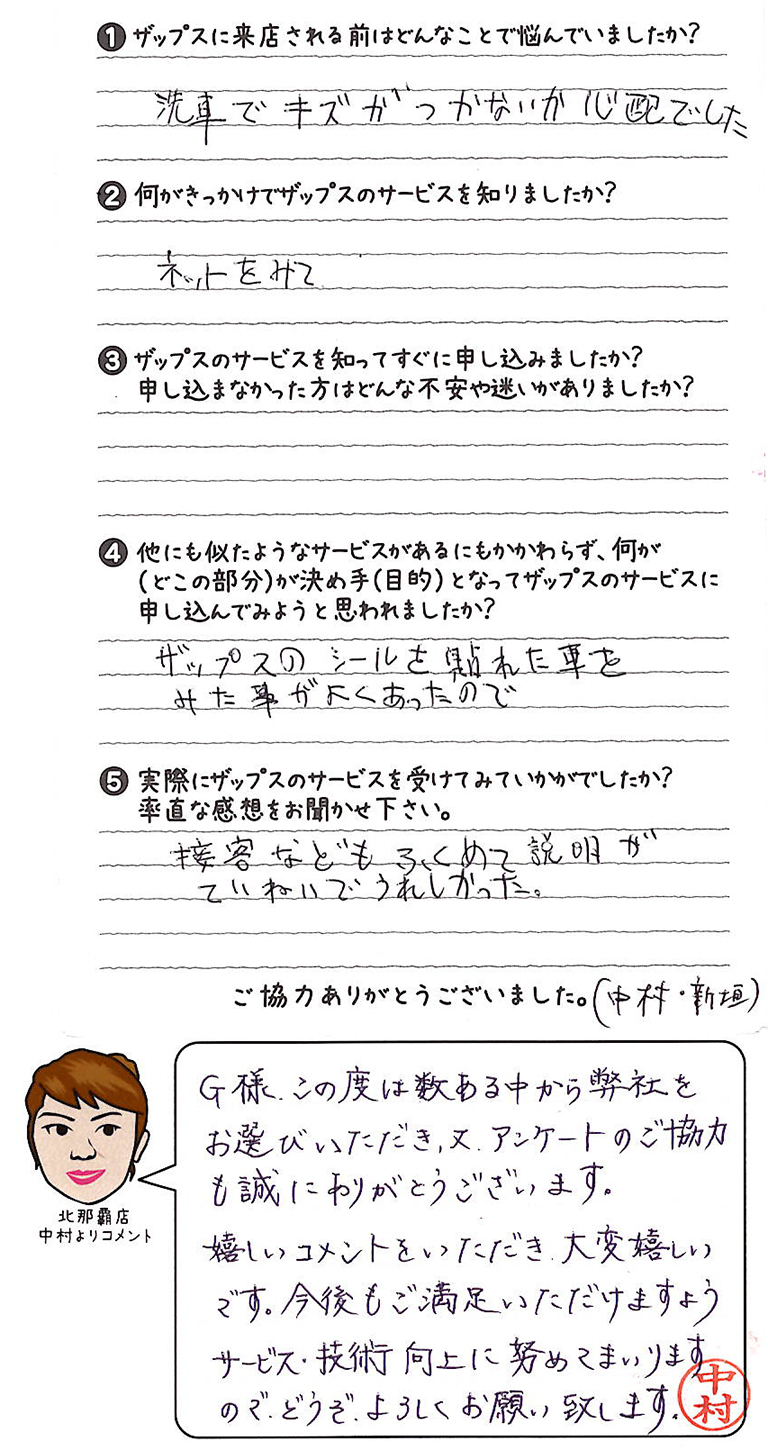 ❶ザップスに来店される前はどんなことで悩んでいましたか？
洗車でキズがつかないか心配でした
❷何がきっかけでザップスのサービスを知りましたか？
ネットをみて
❸ザップスのサービスを知ってすぐに申し込みましたか？
申し込まなかった方はどんな不安や迷いがありましたか？
❹他にも似たようなサービスがあるにもかかわらず、何が
(どこの部分)が決め手(目的)となってザップスのサービスに
申し込んでみようと思われましたか？
ザップスのシールを貼れた車を
みた事がよくあったので
❺実際にザップスのサービスを受けてみていかがでしたか？
率直な感想をお聞かせ下さい。
接客などもふくめて説明が
ていねいでうれしかった。
ご協力ありがとうございました。(中村・新垣)
G様、この度は数ある中から弊社を
お選びいただき、又、アンケートのご協力
も誠にありがとうございます。
嬉しいコメントをいただき、大変嬉しい
です。今後もご満足いただけますよう
サービス・技術向上に努めてまいります
ので、どうぞ、よろしくお願い致します。
中村
北那覇店
中村よりコメント